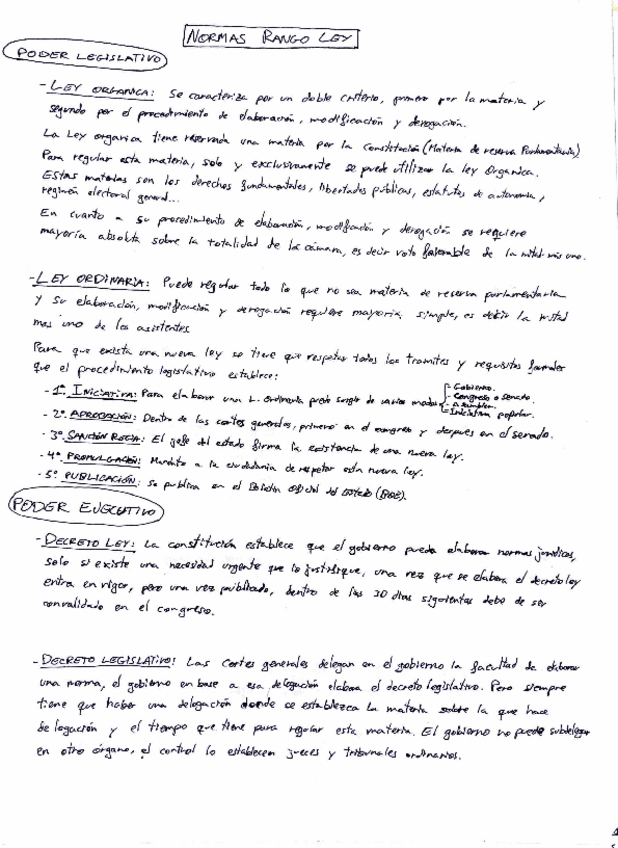 NORMAS RANGO LEY
PODER LEGISLATIVO
- LEY ORGANICA: Se caracteriza por un doble criterio, primero por la materia y
segundo por el procedimiento de elaboración, modificación y derogación.
La Ley organica tiene reservada una materia por la Constitución (Materia de reserva Parlamentaria)
Para regular esta materia, solo y exclusivamente se puede utilizar la ley Organica.
Estas materias son los derechos fundamentales, libertades públicas, estatutos de autonomia,
regimen electoral general...
En cuanto a su procedimiento de elaboración, modificación y derogación se requiere
mayoría absoluta sobre la totalidad de la cámara, es decir voto favorable de la mitad más uno.
- LEY ORDINARIA: Puede regular todo lo que no sea materia de reserva parlamentaria
y su elaboración, modificación y derogación requiere mayoria simple, es decir la mitad
mas uno de los asistentes
Para que exista una nueva ley se tiene que respetar todos los tramites y requisitos formales
que el procedimiento legislativo establece:
- 1º INICIATIVA: Para elaborar una L. Ordinaria puede surgir de varios modos
- Gobierno.
- Congreso o senado.
- Asamblea.
- Iniciativa popular.
- 2º APROBACIÓN: Dentro de las cortes generales, primero en el congreso y despues en el senado.
- 3º SANCIÓN REGIA: El jefe del estado firma la existencia de una nueva ley.
- 4º PROMULGACIÓN: Mandato a la ciudadania de respetar esta nueva ley.
- 5º PUBLICACIÓN: Se publica en el Boletin Oficial del Estado (BOE).
PODER EJECUTIVO
- DECRETO LEY: La constitución establece que el gobierno pueda elaborar normas jurídicas,
solo si existe una necesidad urgente que lo justifique, una vez que se elabora el decreto ley
entra en vigor, pero una vez publicado, dentro de los 30 dias siguientes debe de ser
convalidado en el congreso.
- DECRETO LEGISLATIVO: Las Cortes generales delegan en el gobierno la facultad de elaborar
una norma, el gobierno en base a esa delegación elabora el decreto legislativo. Pero siempre
tiene que haber una delegación donde se establezca la materia sobre la que hace
delegación y el tiempo que tiene para regular esta materia. El gobierno no puede subdelegar
en otro órgano, el control lo establecen jueces y tribunales ordinarios.